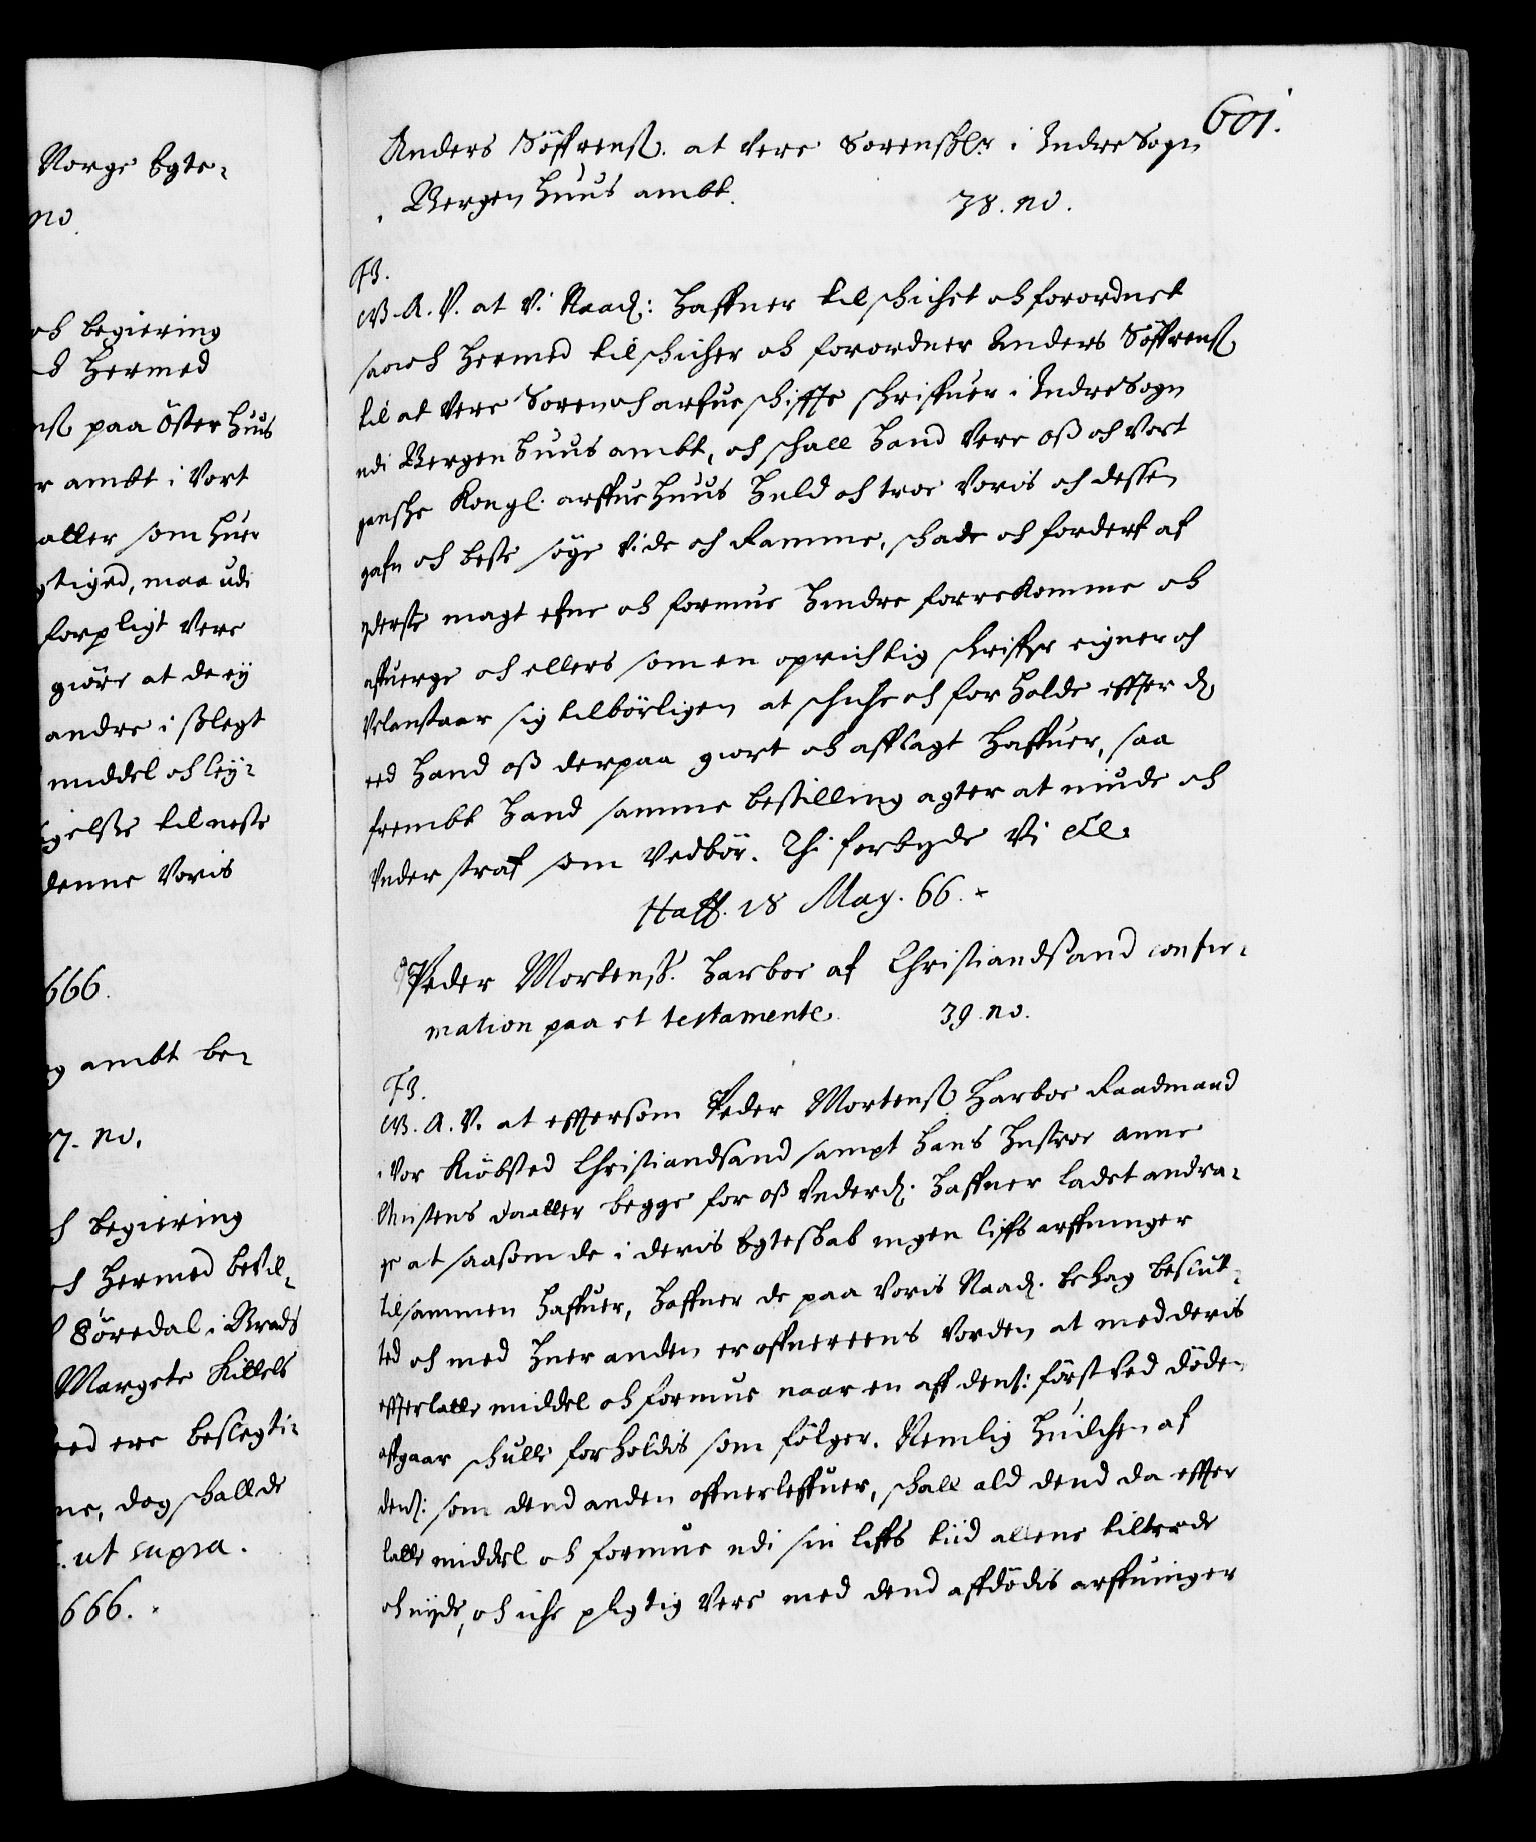 Norge Egte-
no.
och begiering
d hermed
nß paa Öster Huus
r ambt i Vort
aller som huer
gtiged, maa udi
forpligt Vere
giöre at de ey
andre i Slegt
middel och ley-
gelße til neste
denne Voris
666.
g ambt be-
7. no.
ch begiering
ch hermed bevil-
Söredal i Brads
Margete Killels
ed ere beslegti-
ne, dog schall de
. ut supra.
666.
601.
Anders Söffrenß. at vere Sorenskr i Indre Sogn
i Bergen Huus ambt. 38. no.
F3.
W. A. V. at Vi Naad: haffuer til schichet och forordnet
saa och hermed til schicher och forordner Anders Söffrenß
til at Vere Soren och arfue schiffte schrifuer i Indre Sogn
udi Bergen Huus ambt, och schall hand Vere oß och Vort
gansche Kongl. arffue Huus huld och troe Voris och dessen
gafn och beste söge Vide och Ramme, schade och forderf af
yderste magt efne och formue hindre forrekomme och
affuerge och ellers som en oprichtig schriffr eigner och
Velanstaar sig tilbörligen at schiche och forholde effter dn
eed hand oß derpaa giort och afflagt haffuer, saa
frembt hand samme bestilling agter at niude och
Under straf som Vedbör. Thi forbyde Vi etc.
Haffn. 18 May. 66.
Peder Mortenß. Harboe af Christiandsand confir-
mation paa et testamente. 39. no.
F3.
W. A. V. at efftersom Peder Mortenß Harboe Raadmand
i Vor Kiöbsted Christiandsand sampt hans hustroe Anne
Christens daatter begge for oß Underd. haffuer ladet andra-
ge at saasom de i deris Egteskab ingen liffs arffuinger
tilsammen haffuer, haffuer de paa Voris Naad. behag beslut-
ted och med huer anden er offuereens Vorden at med deris
effterlatte middel och formue naar en aff dens: först Ved döden
affgaar schulle forholdis som fölger. Nemlig huilchen af
dens: som dend anden offuerleffuer, schall ald dend da effter
latte middel och formue udi sin liffs tiid allene tiltrede
och nyde, och iche pligtig Vere med dend affdödis arffuinger